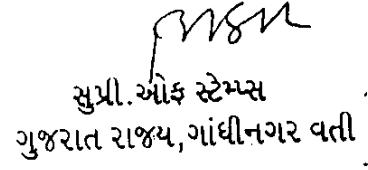 સુપ્રી.ઓફ સ્ટેમ્પ્સ
ગુજરાત રાજય,ગાંધીનગર વતી